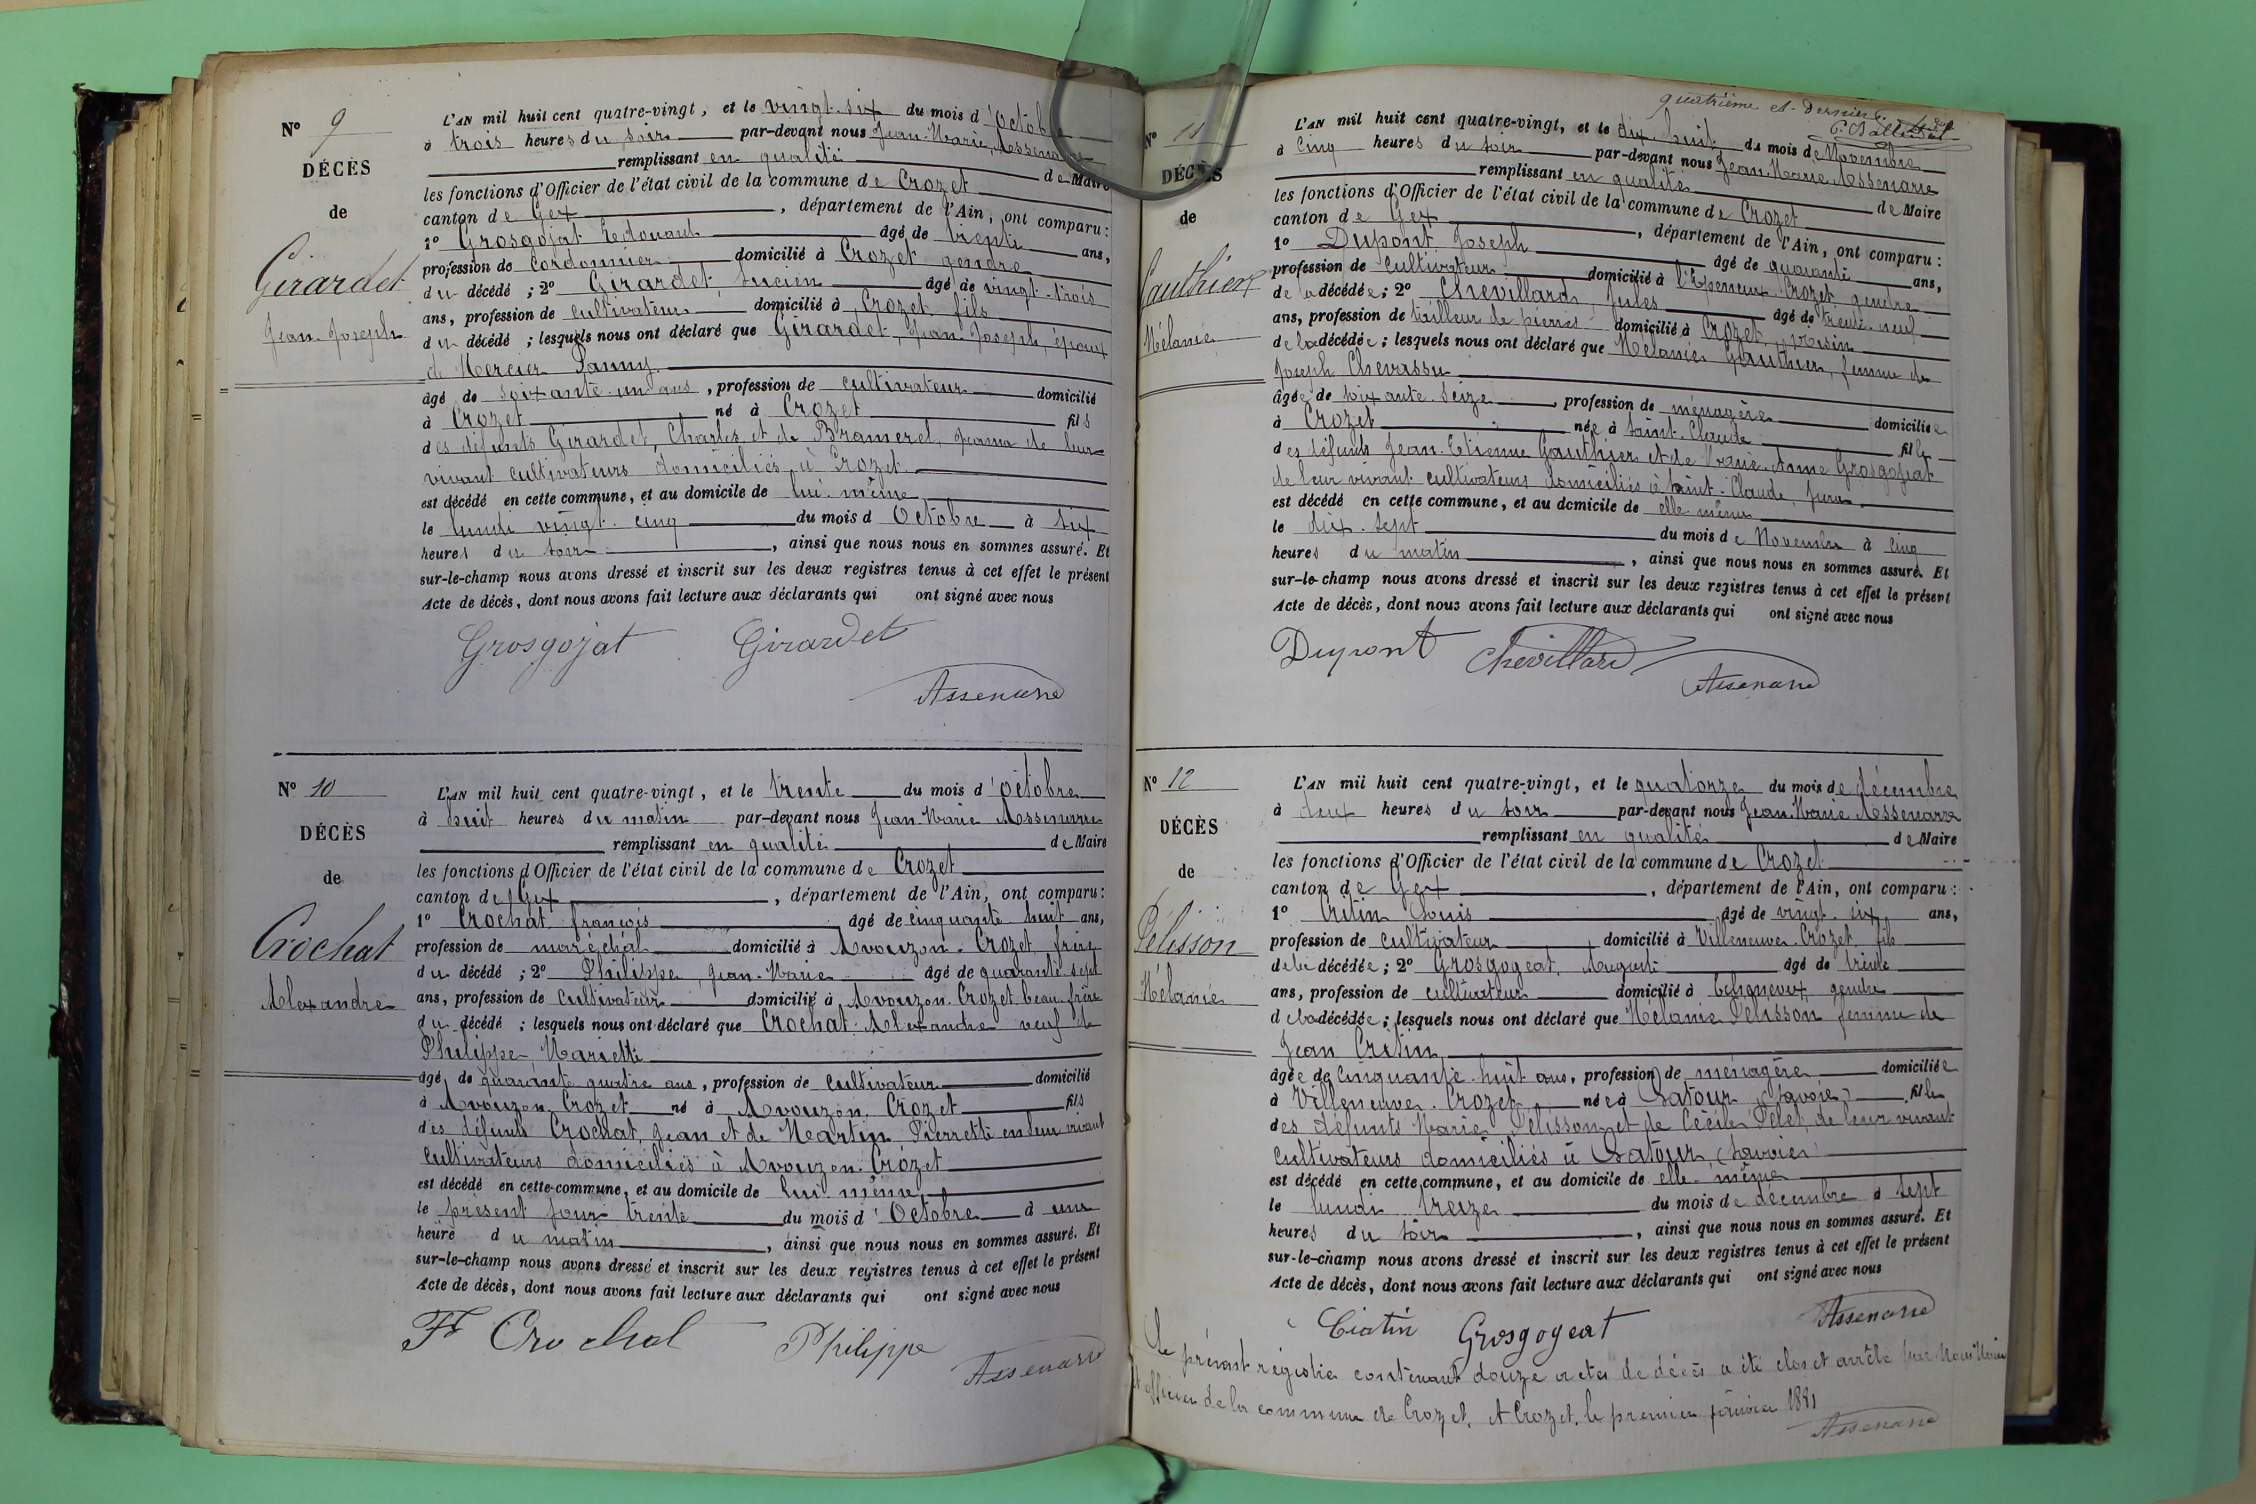 N° 9
DÉCÈS
de
Girardet
Jean Joseph
L'AN mil huit cent quatre-vingt, et le vingt-six du mois d'Octobre
à trois heures du soir par-devant nous Jean-Marie Assenarre
remplissant en qualité de Maire
les fonctions d'Officier de l'état civil de la commune de Crozet
canton de Gex, département de l'Ain, ont comparu:
1° Grosgojat Edouard âgé de trente ans,
profession de cordonnier domicilié à Crozet gendre
du décédé; 2° Girardet, Lucien âgé de vingt-trois
ans, profession de cultivateur domicilié à Crozet, fils
du décédé; lesquels nous ont déclaré que Girardet, Jean-Joseph, époux
de Mercier Fanny.
âgé de soixante-un ans, profession de cultivateur domicilié
à Crozet né à Crozet fils
des défunts Girardet, Charles et de Bramerel, de leur
vivant cultivateurs domiciliés à Crozet
est décédé en cette commune, et au domicile de lui-même
le lundi vingt-cinq du mois d'Octobre à six
heures du soir, ainsi que nous nous en sommes assuré. Et
sur-le-champ nous avons dressé et inscrit sur les deux registres tenus à cet effet le présent
Acte de décès, dont nous avons fait lecture aux déclarants qui ont signé avec nous
Grosgojat Girardet
Assenarre
N° 10
DÉCÈS
de
Crochat
Alexandre
L'AN mil huit cent quatre-vingt, et le trente du mois d'Octobre
à huit heures du matin par-devant nous Jean-Marie Assenarre
remplissant en qualité de Maire
les fonctions d'Officier de l'état civil de la commune de Crozet
canton de Gex, département de l'Ain, ont comparu:
1° Crochat françois âgé de cinquante huit ans,
profession de maréchal domicilié à Avouzon. Crozet, frère
du décédé; 2° Philippe, Jean-Marie âgé de quarante-sept
ans, profession de cultivateur domicilié à Avouzon. Crozet beau-frère
du décédé; lesquels nous ont déclaré que Crochat Alexandre veuf de
Philippe Mariette
âgé de quarante quatre ans, profession de cultivateur domicilié
à Avouzon. Crozet né à Avouzon. Crozet fils
des défunts Crochat, Jean et de Martin Pierrette en leur vivant
cultivateurs domiciliés à Avouzon. Crozet
est décédé en cette commune, et au domicile de lui-même
le présent jour trente du mois d'Octobre à une
heure du matin, ainsi que nous nous en sommes assuré. Et
sur-le-champ nous avons dressé et inscrit sur les deux registres tenus à cet effet le présent
Acte de décès, dont nous avons fait lecture aux déclarants qui ont signé avec nous
Fs Crochat Philippe
Assenarre
quatrième et dernier
N° 11
DÉCÈS
de
Gauthier
Mélanie
L'AN mil huit cent quatre-vingt, et le dix-huit du mois de Novembre
à cinq heures du soir par-devant nous Jean Marie Assenarre
remplissant en qualité de Maire
les fonctions d'Officier de l'état civil de la commune de Crozet
canton de Gex, département de l'Ain, ont comparu:
1° Dupont Joseph âgé de quarante ans,
profession de cultivateur domicilié à Crozet, gendre
de la décédée; 2° Chevillard, Jules âgé de trente-neuf
ans, profession de tailleur de pierres domicilié à Crozet, voisin
de la décédée; lesquels nous ont déclaré que Mélanie Gauthier, femme de
Joseph Chevassu
âgée de soixante seize, profession de ménagère domiciliée
à Crozet née à Saint-Claude fille
des défunts Jean-Etienne Gauthier et de Marie-Anne Grosgojeat
de leur vivant cultivateurs domiciliés à Saint-Claude, Jura
est décédé en cette commune, et au domicile de elle-même
le dix-sept du mois de Novembre à cinq
heures du matin, ainsi que nous nous en sommes assuré. Et
sur-le-champ nous avons dressé et inscrit sur les deux registres tenus à cet effet le présent
Acte de décès, dont nous avons fait lecture aux déclarants qui ont signé avec nous
Dupont Chevillard
Assenarre
N° 12
DÉCÈS
de
Pélisson
Mélanie
L'AN mil huit cent quatre-vingt, et le quatorze du mois de décembre
à deux heures du soir par-devant nous Jean-Marie Assenarre
remplissant en qualité de Maire
les fonctions d'Officier de l'état civil de la commune de Crozet
canton de Gex, département de l'Ain, ont comparu:
1° Critin Louis âgé de vingt-six ans,
profession de cultivateur domicilié à Villeneuve. Crozet fils
de la décédée; 2° Grosgogeat, Auguste âgé de trente
ans, profession de cultivateur domicilié à Echenevex, gendre
de la décédée; lesquels nous ont déclaré que Mélanie Pélisson femme de
Jean Critin
âgée de cinquante-huit ans, profession de ménagère domiciliée
à Villeneuve. Crozet née à Latour (Savoie) fille
des défunts Marie Pélisson et de Cécile Pelet, de leur vivant
cultivateurs domiciliés à Latour (Savoie)
est décédé en cette commune, et au domicile de elle-même
le lundi treize du mois de décembre à sept
heures du soir, ainsi que nous nous en sommes assuré. Et
sur-le-champ nous avons dressé et inscrit sur les deux registres tenus à cet effet le présent
Acte de décès, dont nous avons fait lecture aux déclarants qui ont signé avec nous
Critin Grosgogeat Assenarre
Le présent registre contenant douze actes de décès a été clos et arrêté par Nous Maire
et officier de la commune de Crozet. A Crozet, le premier janvier 1881
Assenarre